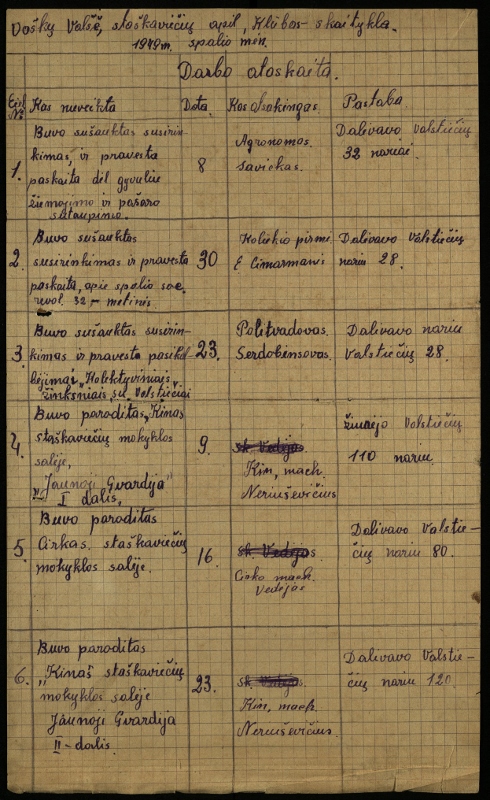 Vošky Valsč, stoškavičių apil, Klūbos-skaitykla.
1949 m. spalio mėn.
Darbo atoskaita.
Eil. Nr. Kas nuveikta Data Kas atsakingas Pastaba
1. Buvo sušauktas susirin-
kimas, ir pravesta
paskaita dėl gyvulių
žiemojimo ir pašaro
sutaupinio.
8
Agronomas
Savickas.
Dalivavo Valstiečių
32 nariai
2. Buvo sušauktas
susirinkimas ir pravesta
paskaita, apie spalio soc.
revol. 32-metinis.
30
Kolūkio pirmi
E Cimarmanis
Dalivavo Valstiečių
nariu 28.
3. Buvo sušauktas susirin-
kimas ir pravesta pasikal-
bėjimai „Kolektyviniais
žinksniais su Valstiečiai
23.
Politvadovas.
Serdobinsovas.
Dalivavo nariu
Valstiečių 28.
4. Buvo paroditas „Kinas
staškavičių mokyklos
salėje,
„Jaunoji Gvardija"
I dalis,
9.
sk Vedėjas
Kin, mach
Neriuševičius
žiurėjo Valstiečių
110 nariu.
5. Buvo paroditas
Cirkas staškavičių
mokyklos salėje.
16
sk Vedėjas
Cirko mach.
Vedėjas
Dalivavo Valstie-
čių nariu 80.
6. Buvo paroditas
„Kinaš staškavičių
mokyklos salėje
Jaunoji Gvardija
II-dalis.
23.
sk Vedėjas
Kin, mach.
Neriuševičius.
Dalivavo Valstie-
čių nariu 120